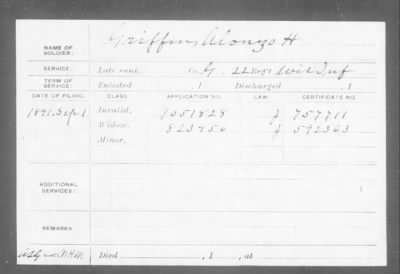 Griffin, Alonzo H
NAME OF SOLDIER:
SERVICE: Late rank, Co. G. 22 Reg't Wis Inf
TERM OF SERVICE: Enlisted , 1 Discharged , 1
DATE OF FILING. CLASS. APPLICATION NO. LAW. CERTIFICATE NO.
1891. Sept 1 Invalid, 1051828 J 757711
Widow, 823456 J 592363
Minor,
ADDITIONAL SERVICES:
REMARKS
Died , 1 , at